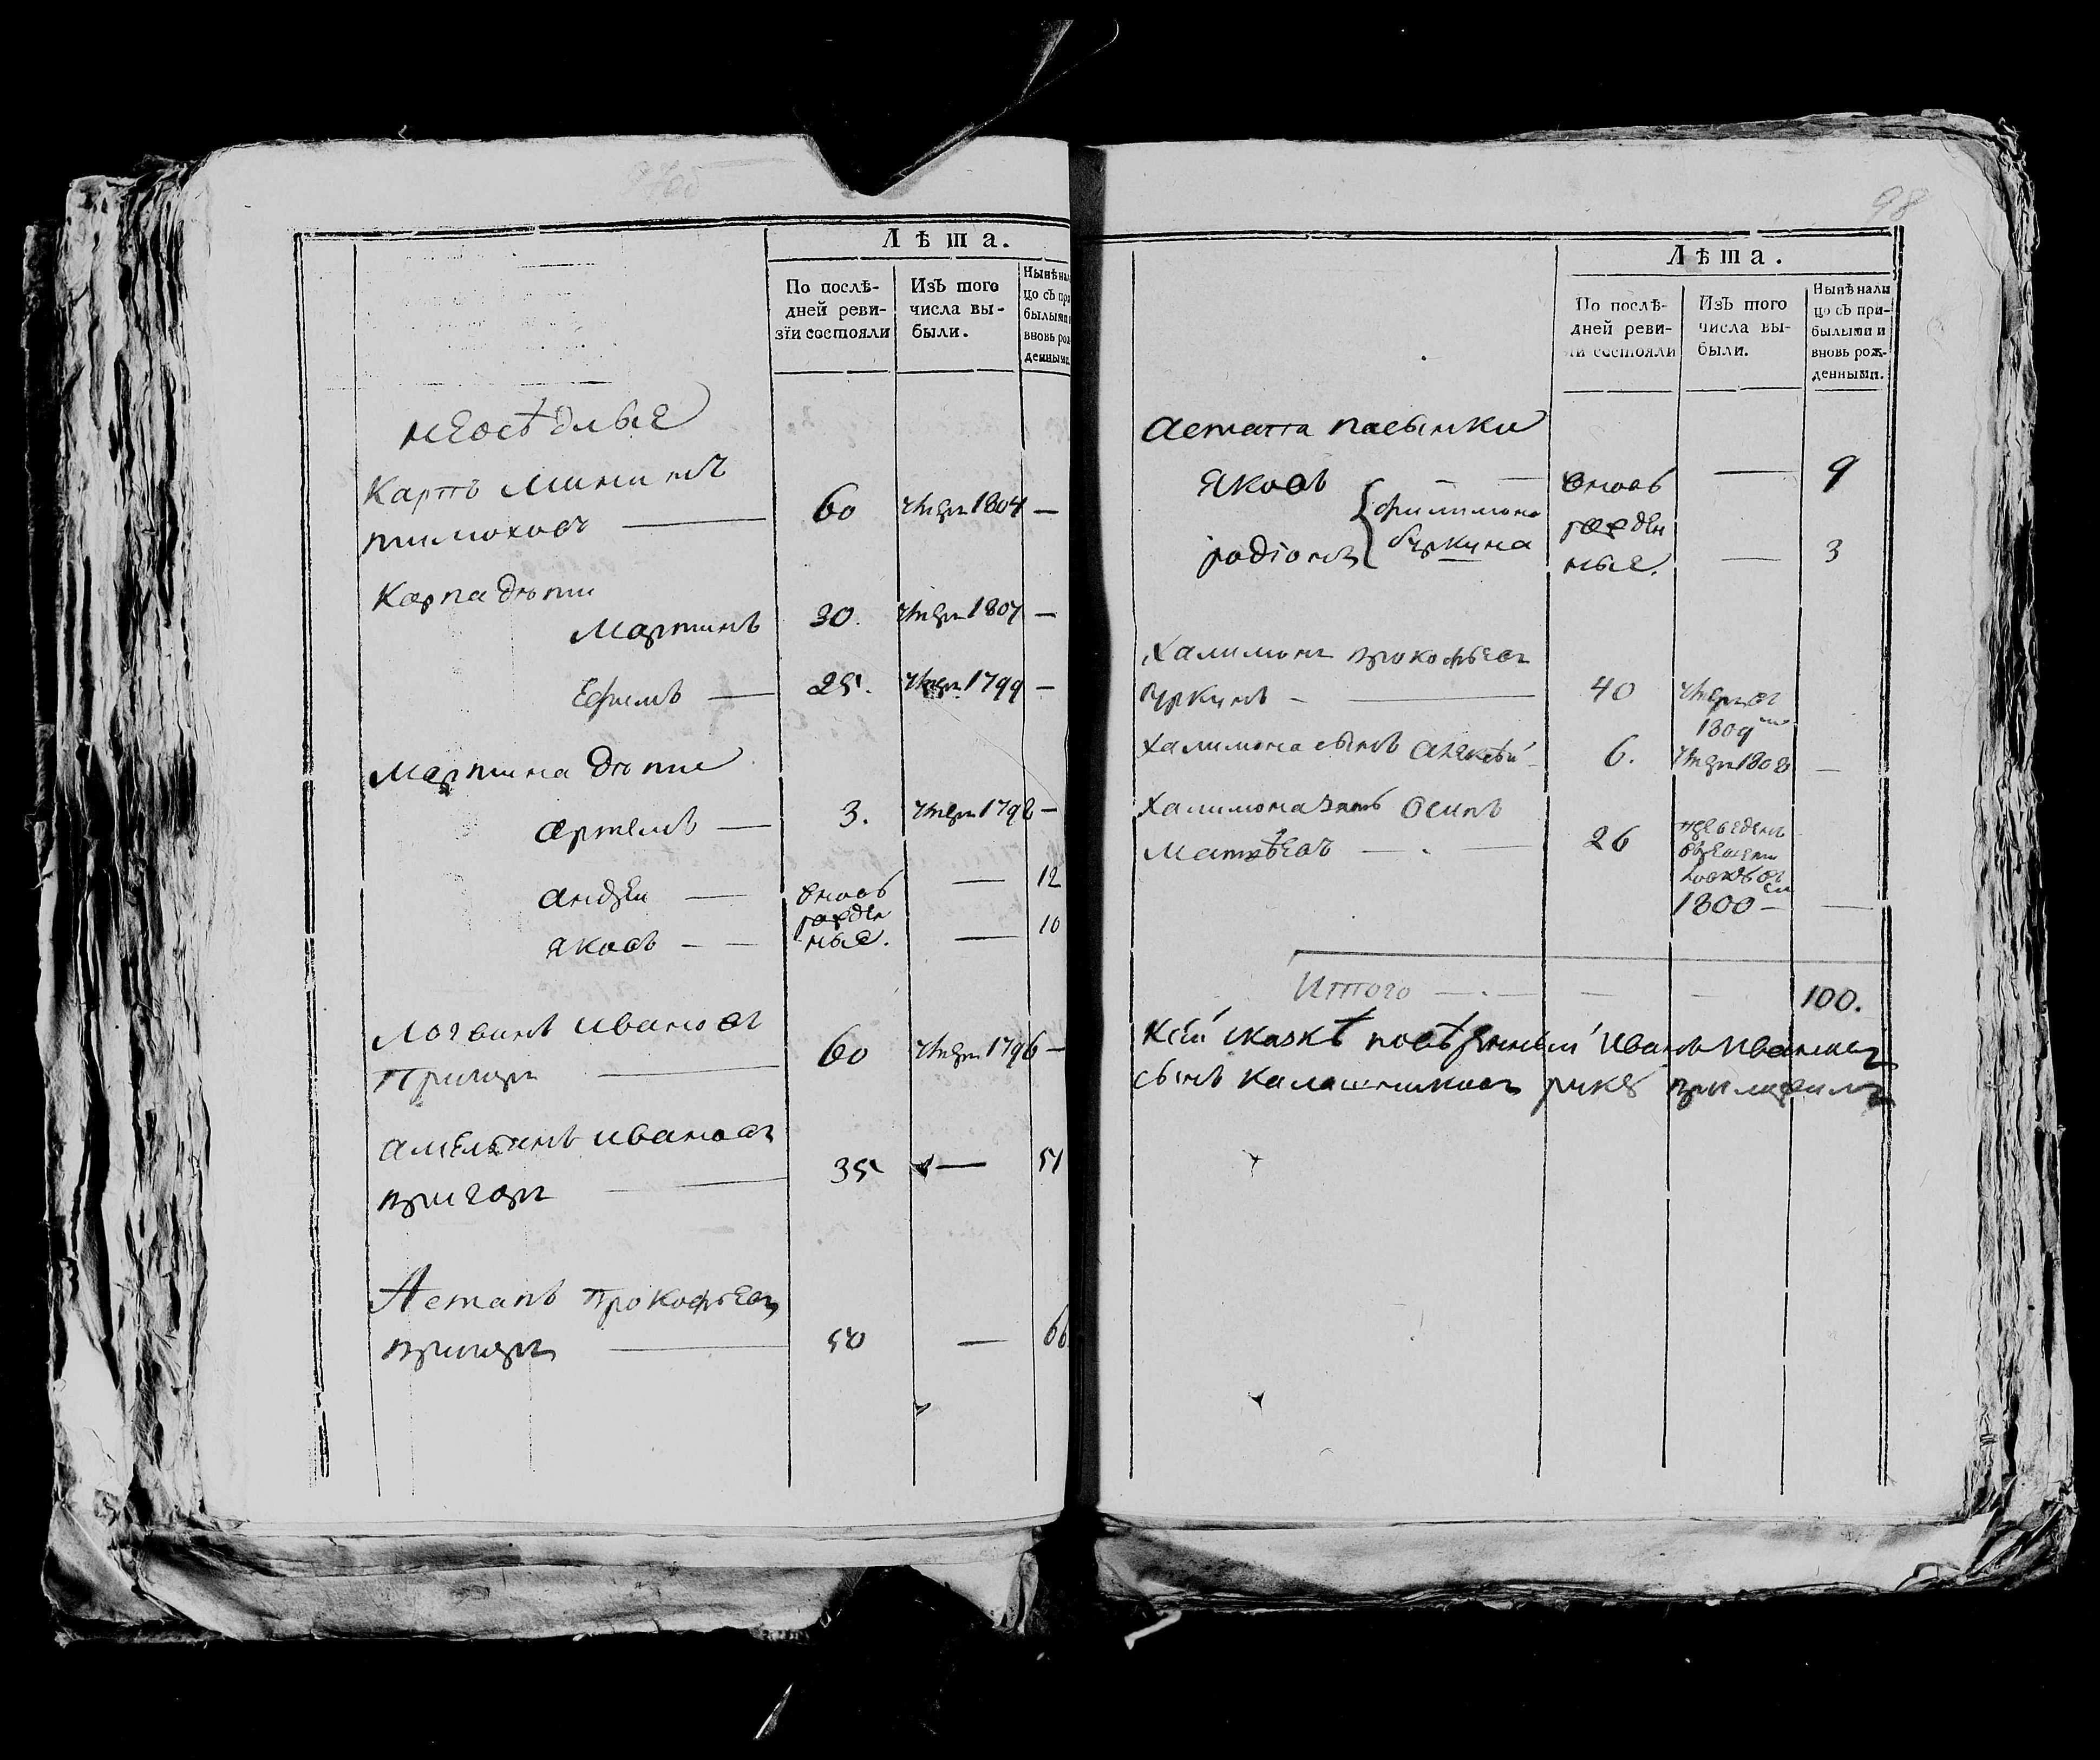 97об
Лѣта.
По послѣ-
дней реви-
зїи состояли
ИзЪ того
числа вы-
были.
Нынѣ нали
цо съ при
былыми и
вновь рож
денными
неосѣдлые
Карпъ Мининъ
Тимоховъ — 60 умеръ 1804 —
Карпа дѣти
Мартинъ 30. умеръ 1807 —
Ефимъ — 25. умеръ 1799 —
Мартина дѣти
Артемъ — 3. умеръ 1798 —
Андреи — вновь — 12
рожден
Яковъ — — ные. — 10
Логвинъ Ивановъ
Пригари — 60 умеръ 1796 —
Амельянъ Ивановъ
пригари — 35 — 51
Астапъ Прокофьевъ
пригари — 50 — 66
98
Лѣта.
По послѣ-
дней реви-
зїи состояли
ИзЪ того
числа вы-
были.
Нынѣ нали
цо съ при-
былыми и
вновь рож-
денными.
Астапа пасынки
Яковъ — — вновь — 9
филимона
рожден
Родіонъ буркуна ные. — 3
Халимонъ прокофьевъ
Буркунъ — 40 умеръ въ
1809мъ
Халимона сынъ Алексѣй 6. умеръ 1808 —
Халимона зять Осипъ
Матвѣевъ — . — 26
1800 — —
Итого — . — — — 100.
К сей сказкѣ повѣренный Иванъ Ивановъ
сынъ Калашниковъ руку приложилъ